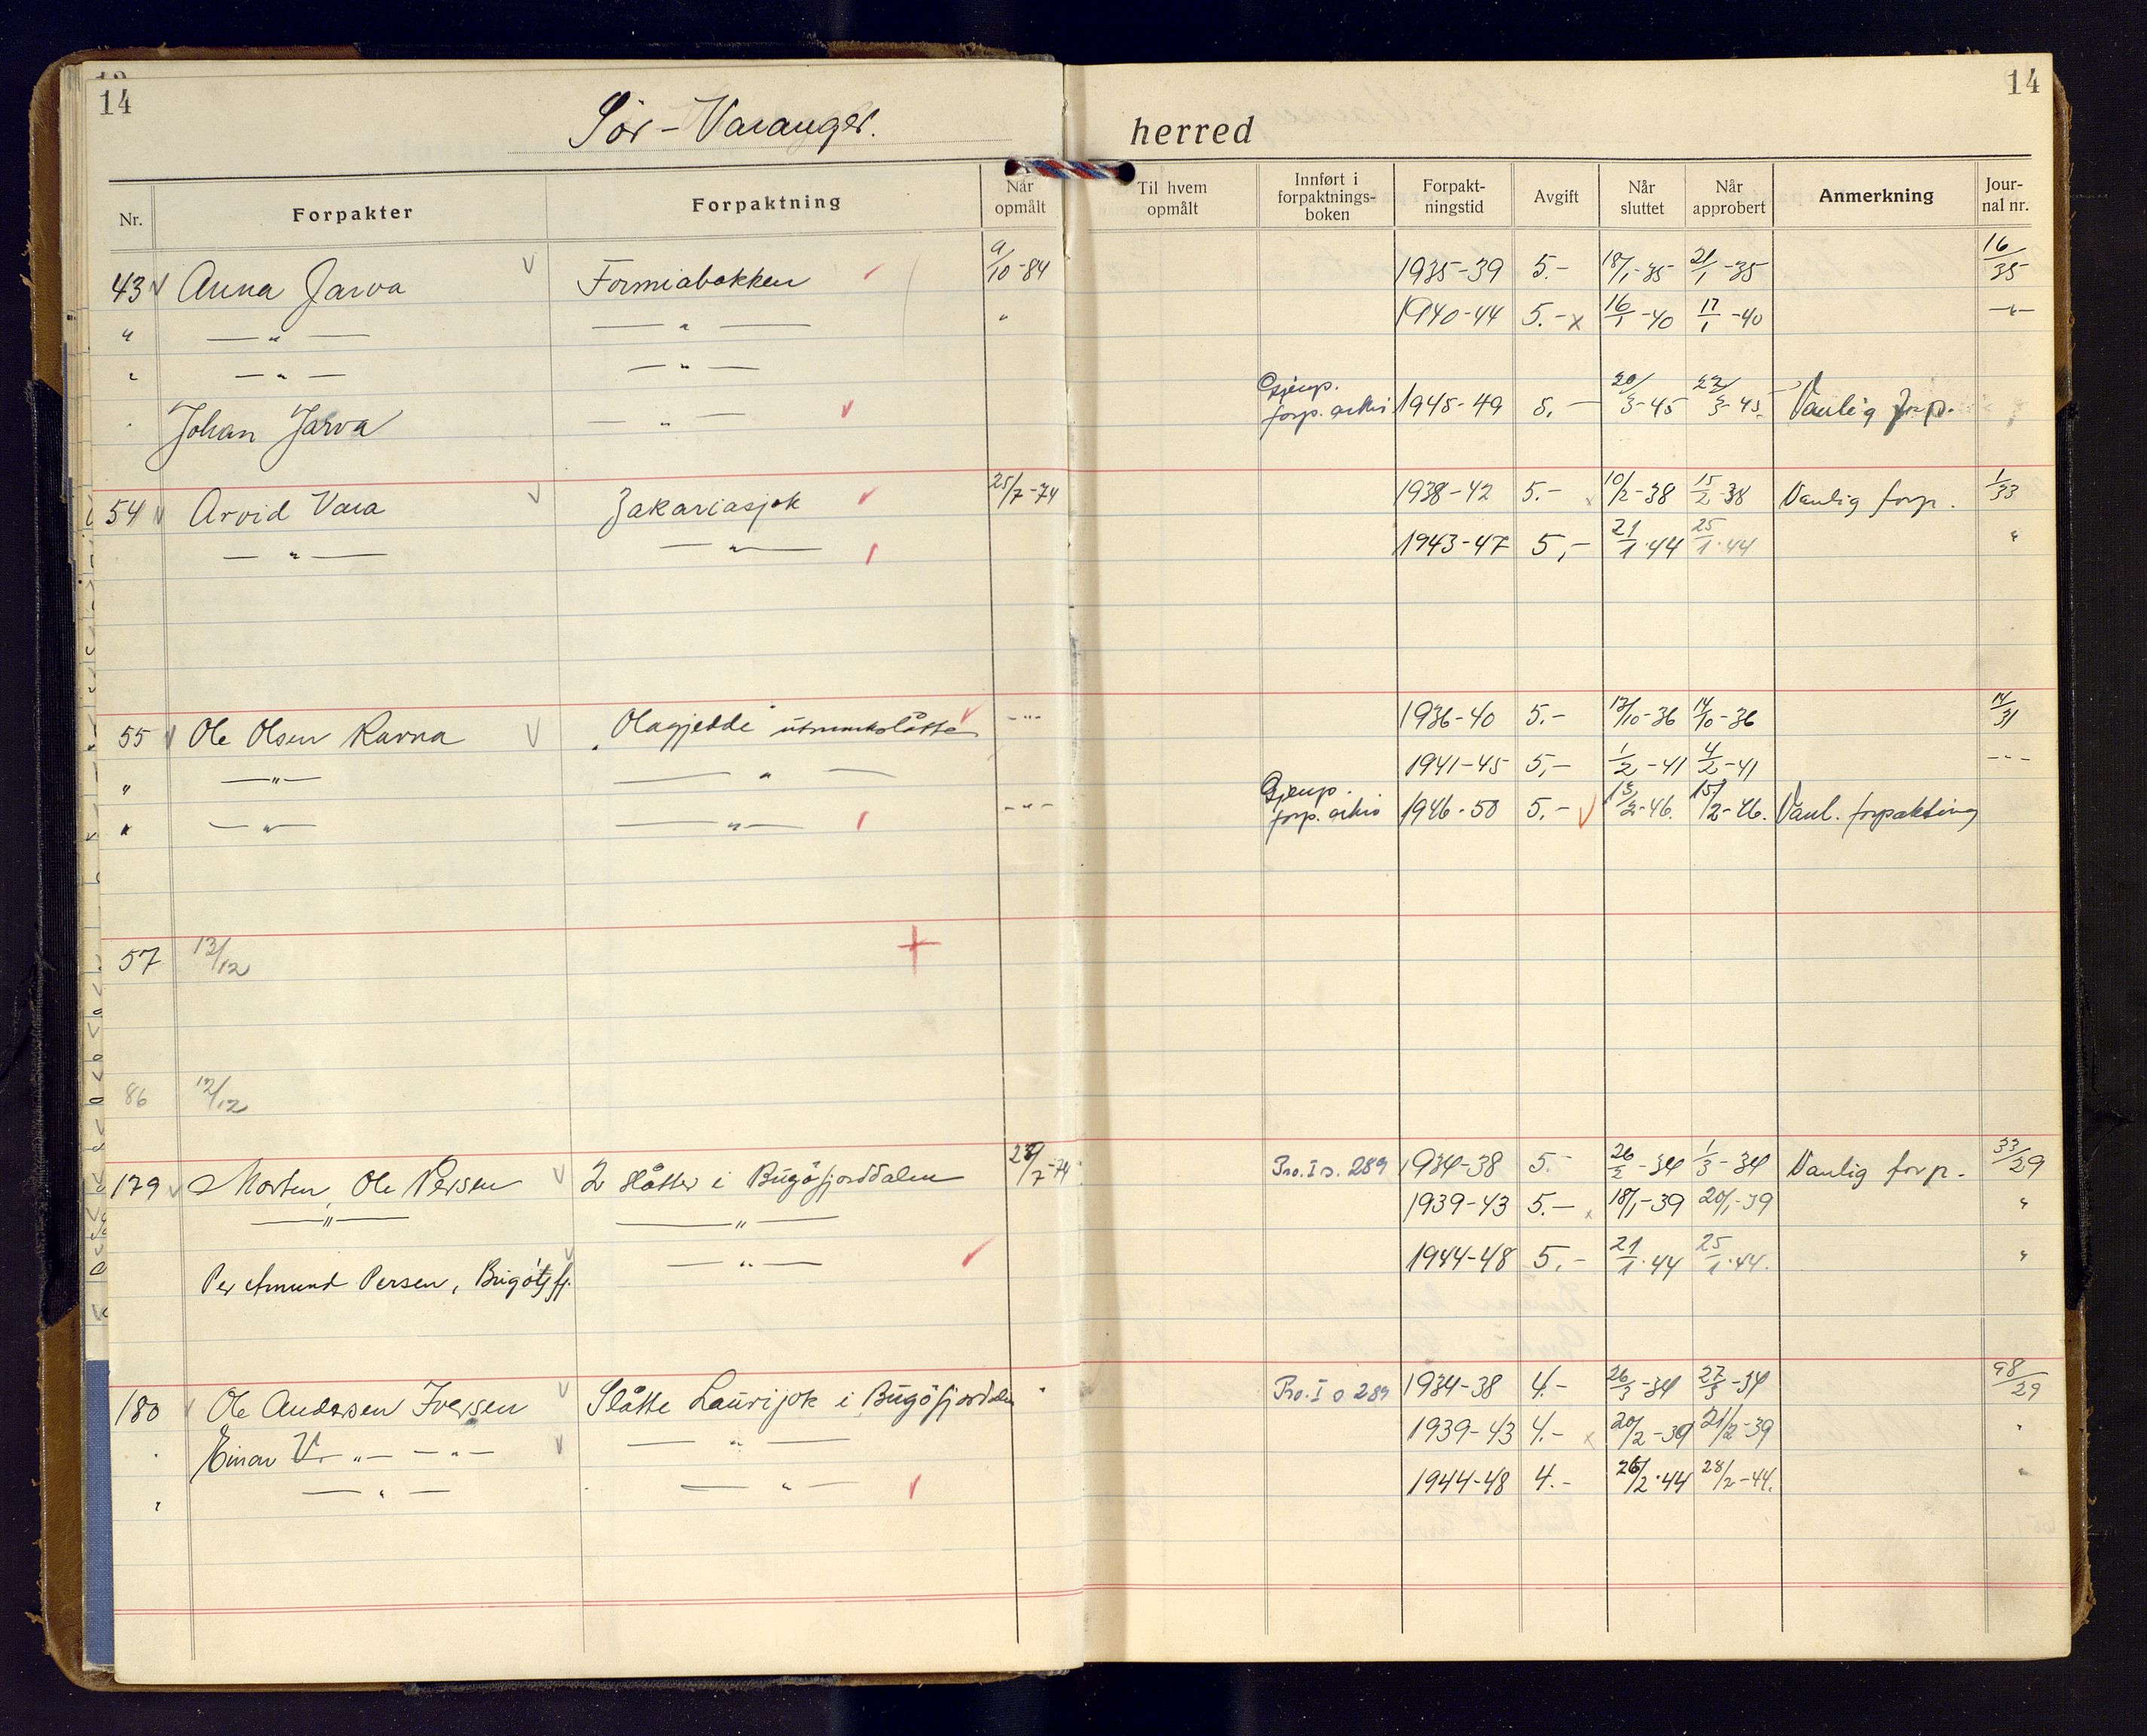 14
14
Sør-Varanger. herred
Nr. Forpakter Forpaktning Når opmålt Til hvem opmålt Innført i forpaktnings-boken Forpakt-ningstid Avgift Når sluttet Når approbert Anmerkning Jour-nal nr.
43 Anna Jarva Formiabakken 9/10-84 1935-39 5.- 18/1-35 21/1-35 16/35
" —"— —"— " 1940-44 5.- x 16/1-40 17/1-40 —"—
" —"— —"—
Johan Jarva —"— Gjenp. forp. arkiv 1945-49 5.- 20/3-45 22/3-45. Vanlig forp.
54 Arvid Vara Zakariasjok 25/7-74 1938-42 5.- 10/2-38 15/2-38 Vanlig forp. 1/33
—"— —"— 1943-47 5,- 21/1.44 25/1.44 "
55 Ole Olsen Ravna "Olagjedde" utmarkslåtte -"- 1936-40 5.- 13/10-36 14/10-36 14/31
" —"— —"— 1941-45 5,- 1/2-41 4/2-41 -"-
" —"— —"— -"- Gjenp. forp. arkiv 1946-50 5.- 13/2-46. 15/2-46. Vanl. forpaktning
57 13/12
86 12/12
179 Morten Ole Persen 2 slåtter i Bugöfjorddalen 27/7-74 Pro. I s. 289 1934-38 5.- 26/2-34 1/3-34 Vanlig forp. 33/29
—"— —"— 1939-43 5.- x 18/1-39 20/1-39 "
Per Amund Persen, Bugöfj. —"— 1944-48 5.- 21/1.44 25/1.44. "
180 Ole Andersen Iversen Slåtte Laurijok i Bugöfjorddalen " Pro. I s 289 1934-38 4.- 26/3-34 27/3-34 98/29
" Einar V. —"— —"— —"— 1939-43 4.- x 20/2-39 21/2-39 "
" —"— —"— 1944-48 4.- 26/2.44 28/2-44. "